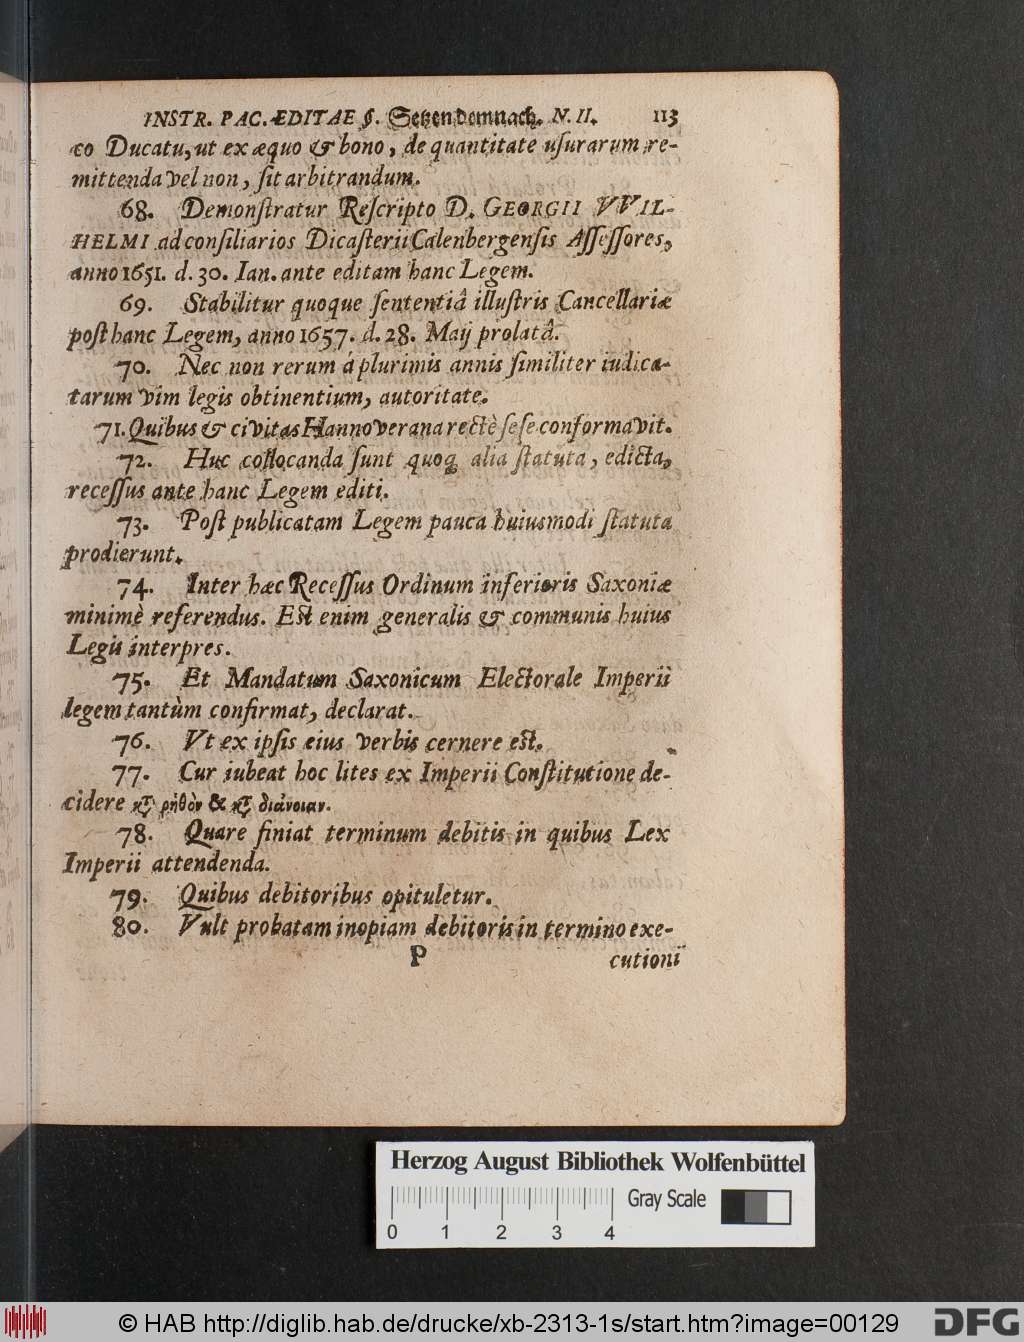 INSTR. PAC. ÆDITAE §. Setzen demnach. N. II. 113
eo Ducatu, ut ex æquo & bono, de quantitate uſurarum re-
mittenda vel non, ſit arbitrandum.
68. Demonſtratur Reſcripto D. GEORGII VVIL-
HELMI ad conſiliarios Dicaſterii Calenbergenſis Aſſeſſores,
anno 1651. d. 30. Ian. ante editam hanc Legem.
69. Stabilitur quoque ſententiâ illuſtris Cancellariæ
poſt hanc Legem, anno 1657. d. 28. Maij prolatâ.
70. Nec non rerum á plurimis annis ſimiliter iudica-
tarum vim legis obtinentium, autoritate.
71. Quibus & civitas Hannoverana rectè ſeſe conformavit.
72. Huc collocanda ſunt quoq; alia ſtatuta, edicta,
receſſus ante hanc Legem editi.
73. Poſt publicatam Legem pauca huiusmodi ſtatuta
prodierunt.
74. Inter hæc Receſſus Ordinum inferioris Saxoniæ
minimè referendus. Eſt enim generalis & communis huius
Legis interpres.
75. Et Mandatum Saxonicum Electorale Imperii
legem tantùm confirmat, declarat.
76. Vt ex ipſis eius verbis cernere eſt.
77. Cur iubeat hoc lites ex Imperii Conſtitutione de-
cidere κτ̃ ῥηθὸν & κτ̃ διάνοιαν.
78. Quare finiat terminum debitis in quibus Lex
Imperii attendenda.
79. Quibus debitoribus opituletur.
80. Vult probatam inopiam debitoris in termino exe-
P cutioni
Herzog August Bibliothek Wolfenbüttel
Gray Scale
0 1 2 3 4
© HAB http://diglib.hab.de/drucke/xb-2313-1s/start.htm?image=00129
DFG